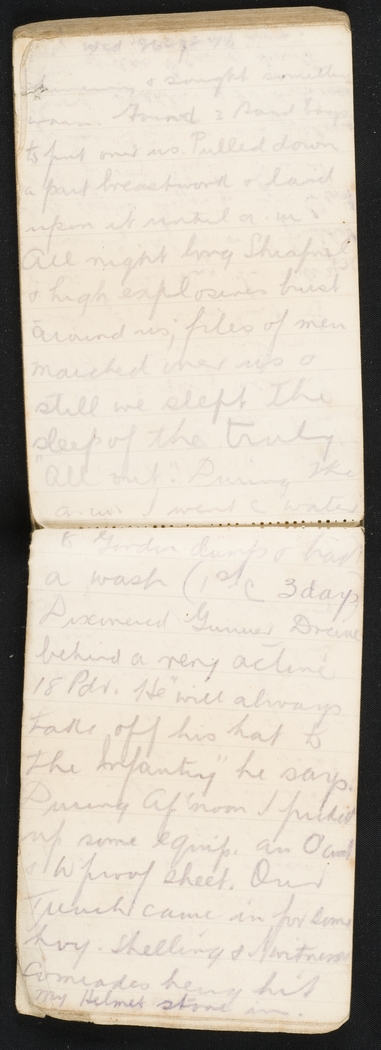 & sought something
warm. Found 2 Sand bags
to put over us. Pulled down
a part breastwork & laid
upon it until a.m.
All night long Shrapnel
& high explosives burst
around us; files of men
marched over us &
still we slept the
sleep of the truly
"All out". During the
a.m. I went c water
to Gordon dump & had
a wash (1st c 3 days)
Discovered Gunner
behind a very active
18 Pdr. He "will always
take off his hat to
the Infantry" he says.
During Af'noon I picked
up some equip. an O'coat
& W proof sheet. Our
Trench came in for some
hvy. shelling & I witness
Comrades being hit
My Helmet stove in.